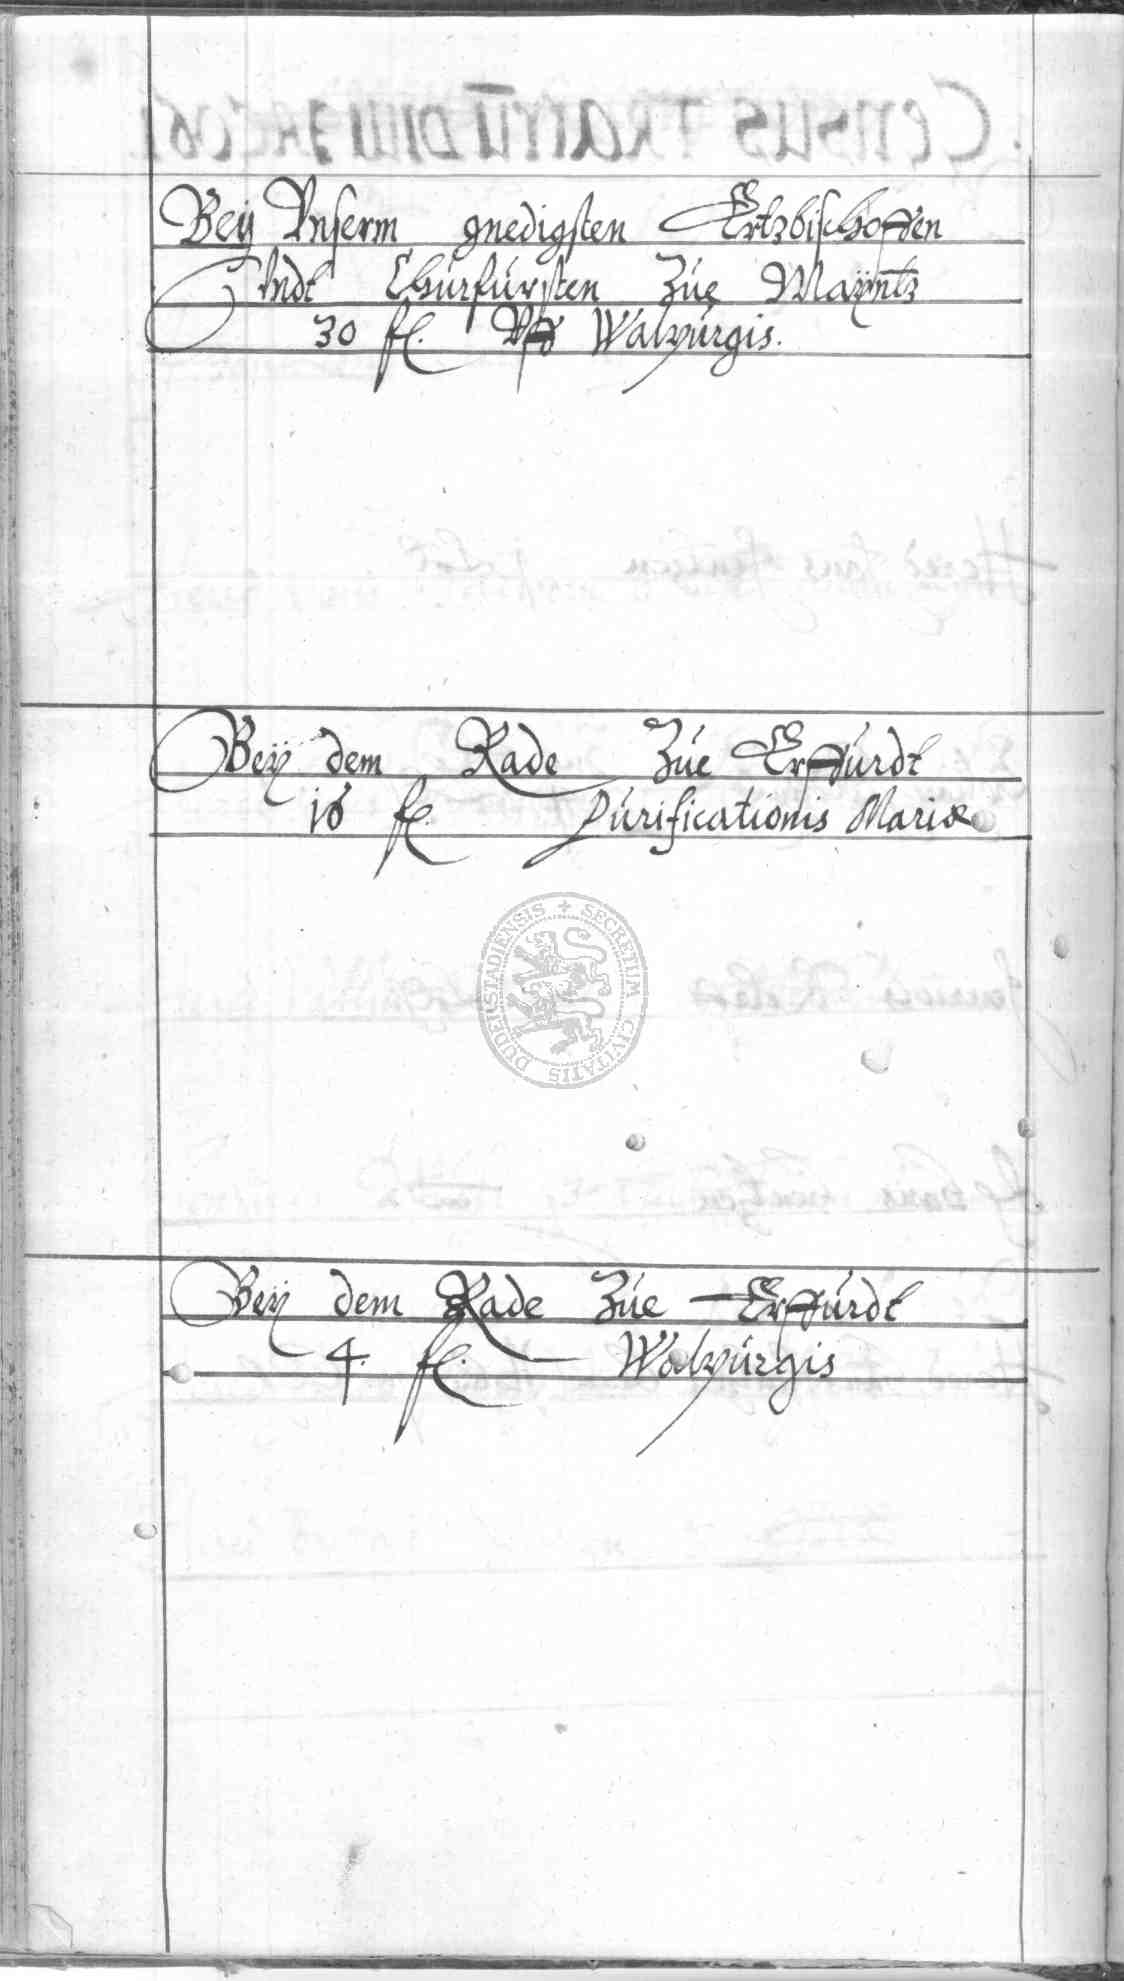 Beÿ Vnserm gnedigsten Ertzbischoffen
Vndt Churfürsten Zue Mayntz
30 fl. Vff Walpurgis.
Beÿ dem Rade Zue Erffurdt
16 fl. Purificationis Mariæ
SECRETUM CIVITATIS DUDERSTADIENSIS
Beÿ dem Rade Zue Erffurdt
4. fl. Walpurgis